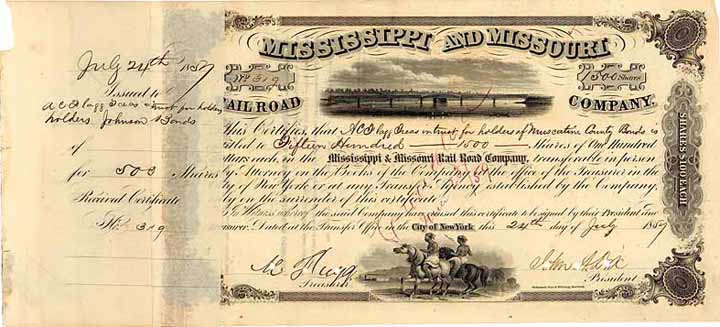 July 24th 1857
Issued to
A C Flagg Treas in trust for holders
holders Johnson Bonds
of
for 500 Shares
Received Certificate
No. 319
MISSISSIPPI AND MISSOURI
No 319
1500 Shares
RAIL ROAD COMPANY.
This Certifies, that A C Flagg Treas in trust for holders of Muscatine County Bonds is
titled to Fifteen Hundred 1500 Shares of One Hundred
Dollars each, in the Mississippi & Missouri Rail Road Company, transferable in person
by Attorney on the Books of the Company, at the office of the Treasurer in the
City of New York or at any Transfer Agency established by the Company,
only on the surrender of this certificate.
In Witness whereof the said Company have caused this certificate to be signed by their President and
Treasurer. Dated at the Transfer Office in the City of New York this 24th day of July 1857
Treasurer
John A Dix
President
SHARES $100 EACH